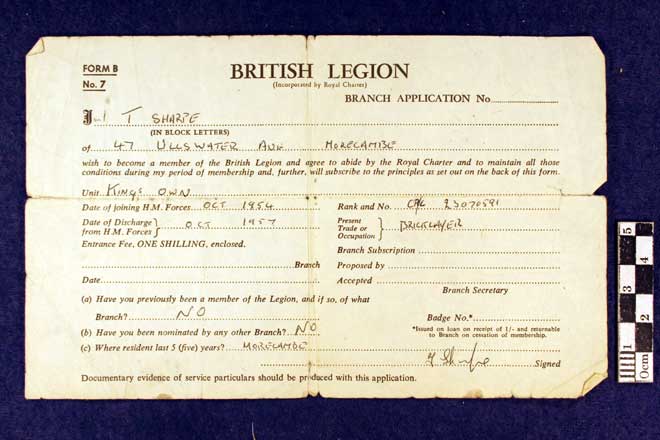 FORM B
No. 7
BRITISH LEGION
(Incorporated by Royal Charter)
BRANCH APPLICATION No.
I T SHARPE
(IN BLOCK LETTERS)
of 47 ULLSWATER AVE MORECAMBE
wish to become a member of the British Legion and agree to abide by the Royal Charter and to maintain all those
conditions during my period of membership and, further, will subscribe to the principles as set out on the back of this form.
Unit KINGS OWN
Date of joining H.M. Forces OCT 1954 Rank and No. CPL 23070591
Date of Discharge from H.M. Forces } OCT 1957 Present Trade or Occupation } BRICKLAYER
Entrance Fee, ONE SHILLING, enclosed.
Branch Subscription
Branch Proposed by
Date Accepted
Branch Secretary
(a) Have you previously been a member of the Legion, and if so, of what
Branch? NO Badge No.*
(b) Have you been nominated by any other Branch? NO
*Issued on loan on receipt of 1/- and returnable
to Branch on cessation of membership.
(c) Where resident last 5 (five) years? MORECAMBE
T Sharpe Signed
Documentary evidence of service particulars should be produced with this application.
0cm 1 2 3 4 5